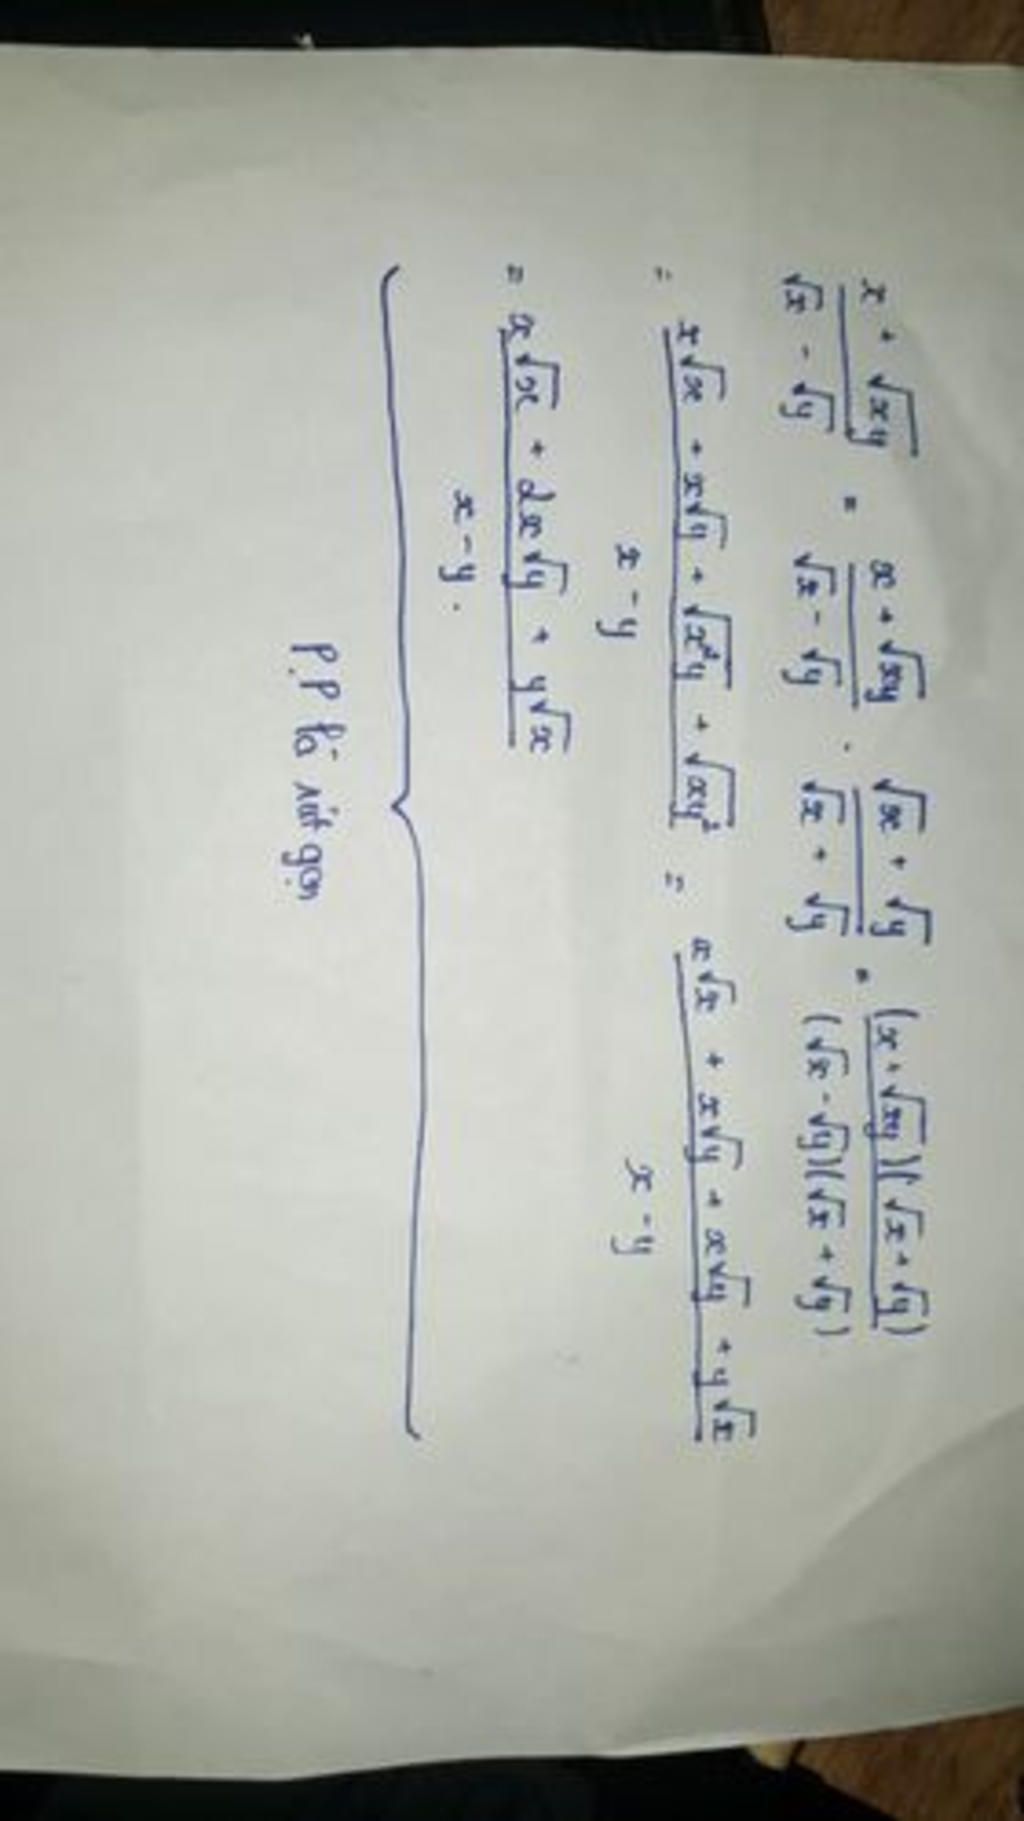 x + √xy / √x - √y = x + √xy / √x - √y · √x + √y / √x + √y = (x + √xy)(√x + √y) / (√x - √y)(√x + √y)
= x√x + x√y + √x²y + √xy² / x - y = x√x + x√y + x√y + y√x / x - y
= x√x + 2x√y + y√x / x - y.
P.P là rút gọn